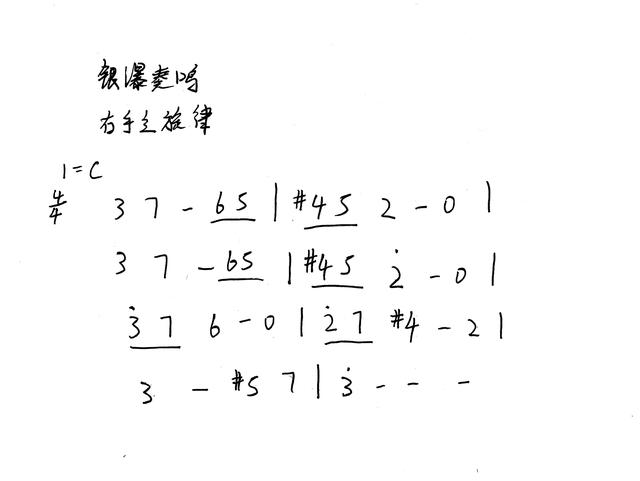 银瀑奏鸣
右手主旋律
1=C
4/4 3 7 - 65 | #45 2 - 0 |
3 7 - 65 | #45 2̇ - 0 |
3̇7 6 - 0 | 2̇7 #4 - 2 |
3 - #5 7 | 3̇ - - -